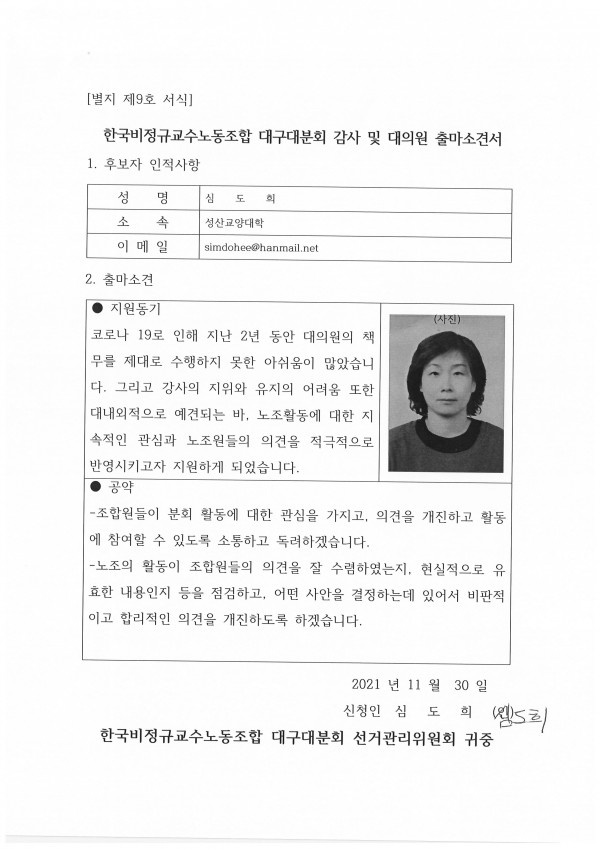 [별지 제9호 서식]
한국비정규교수노동조합 대구대분회 감사 및 대의원 출마소견서
1. 후보자 인적사항
성 명 심 도 희
소 속 성산교양대학
이 메 일 simdohee@hanmail.net
2. 출마소견
● 지원동기
(사진)
코로나 19로 인해 지난 2년 동안 대의원의 책
무를 제대로 수행하지 못한 아쉬움이 많았습니
다. 그리고 강사의 지위와 유지의 어려움 또한
대내외적으로 예견되는 바, 노조활동에 대한 지
속적인 관심과 노조원들의 의견을 적극적으로
반영시키고자 지원하게 되었습니다.
● 공약
-조합원들이 분회 활동에 대한 관심을 가지고, 의견을 개진하고 활동
에 참여할 수 있도록 소통하고 독려하겠습니다.
-노조의 활동이 조합원들의 의견을 잘 수렴하였는지, 현실적으로 유
효한 내용인지 등을 점검하고, 어떤 사안을 결정하는데 있어서 비판적
이고 합리적인 의견을 개진하도록 하겠습니다.
2021 년 11 월 30 일
신청인 심 도 희 (인)
한국비정규교수노동조합 대구대분회 선거관리위원회 귀중